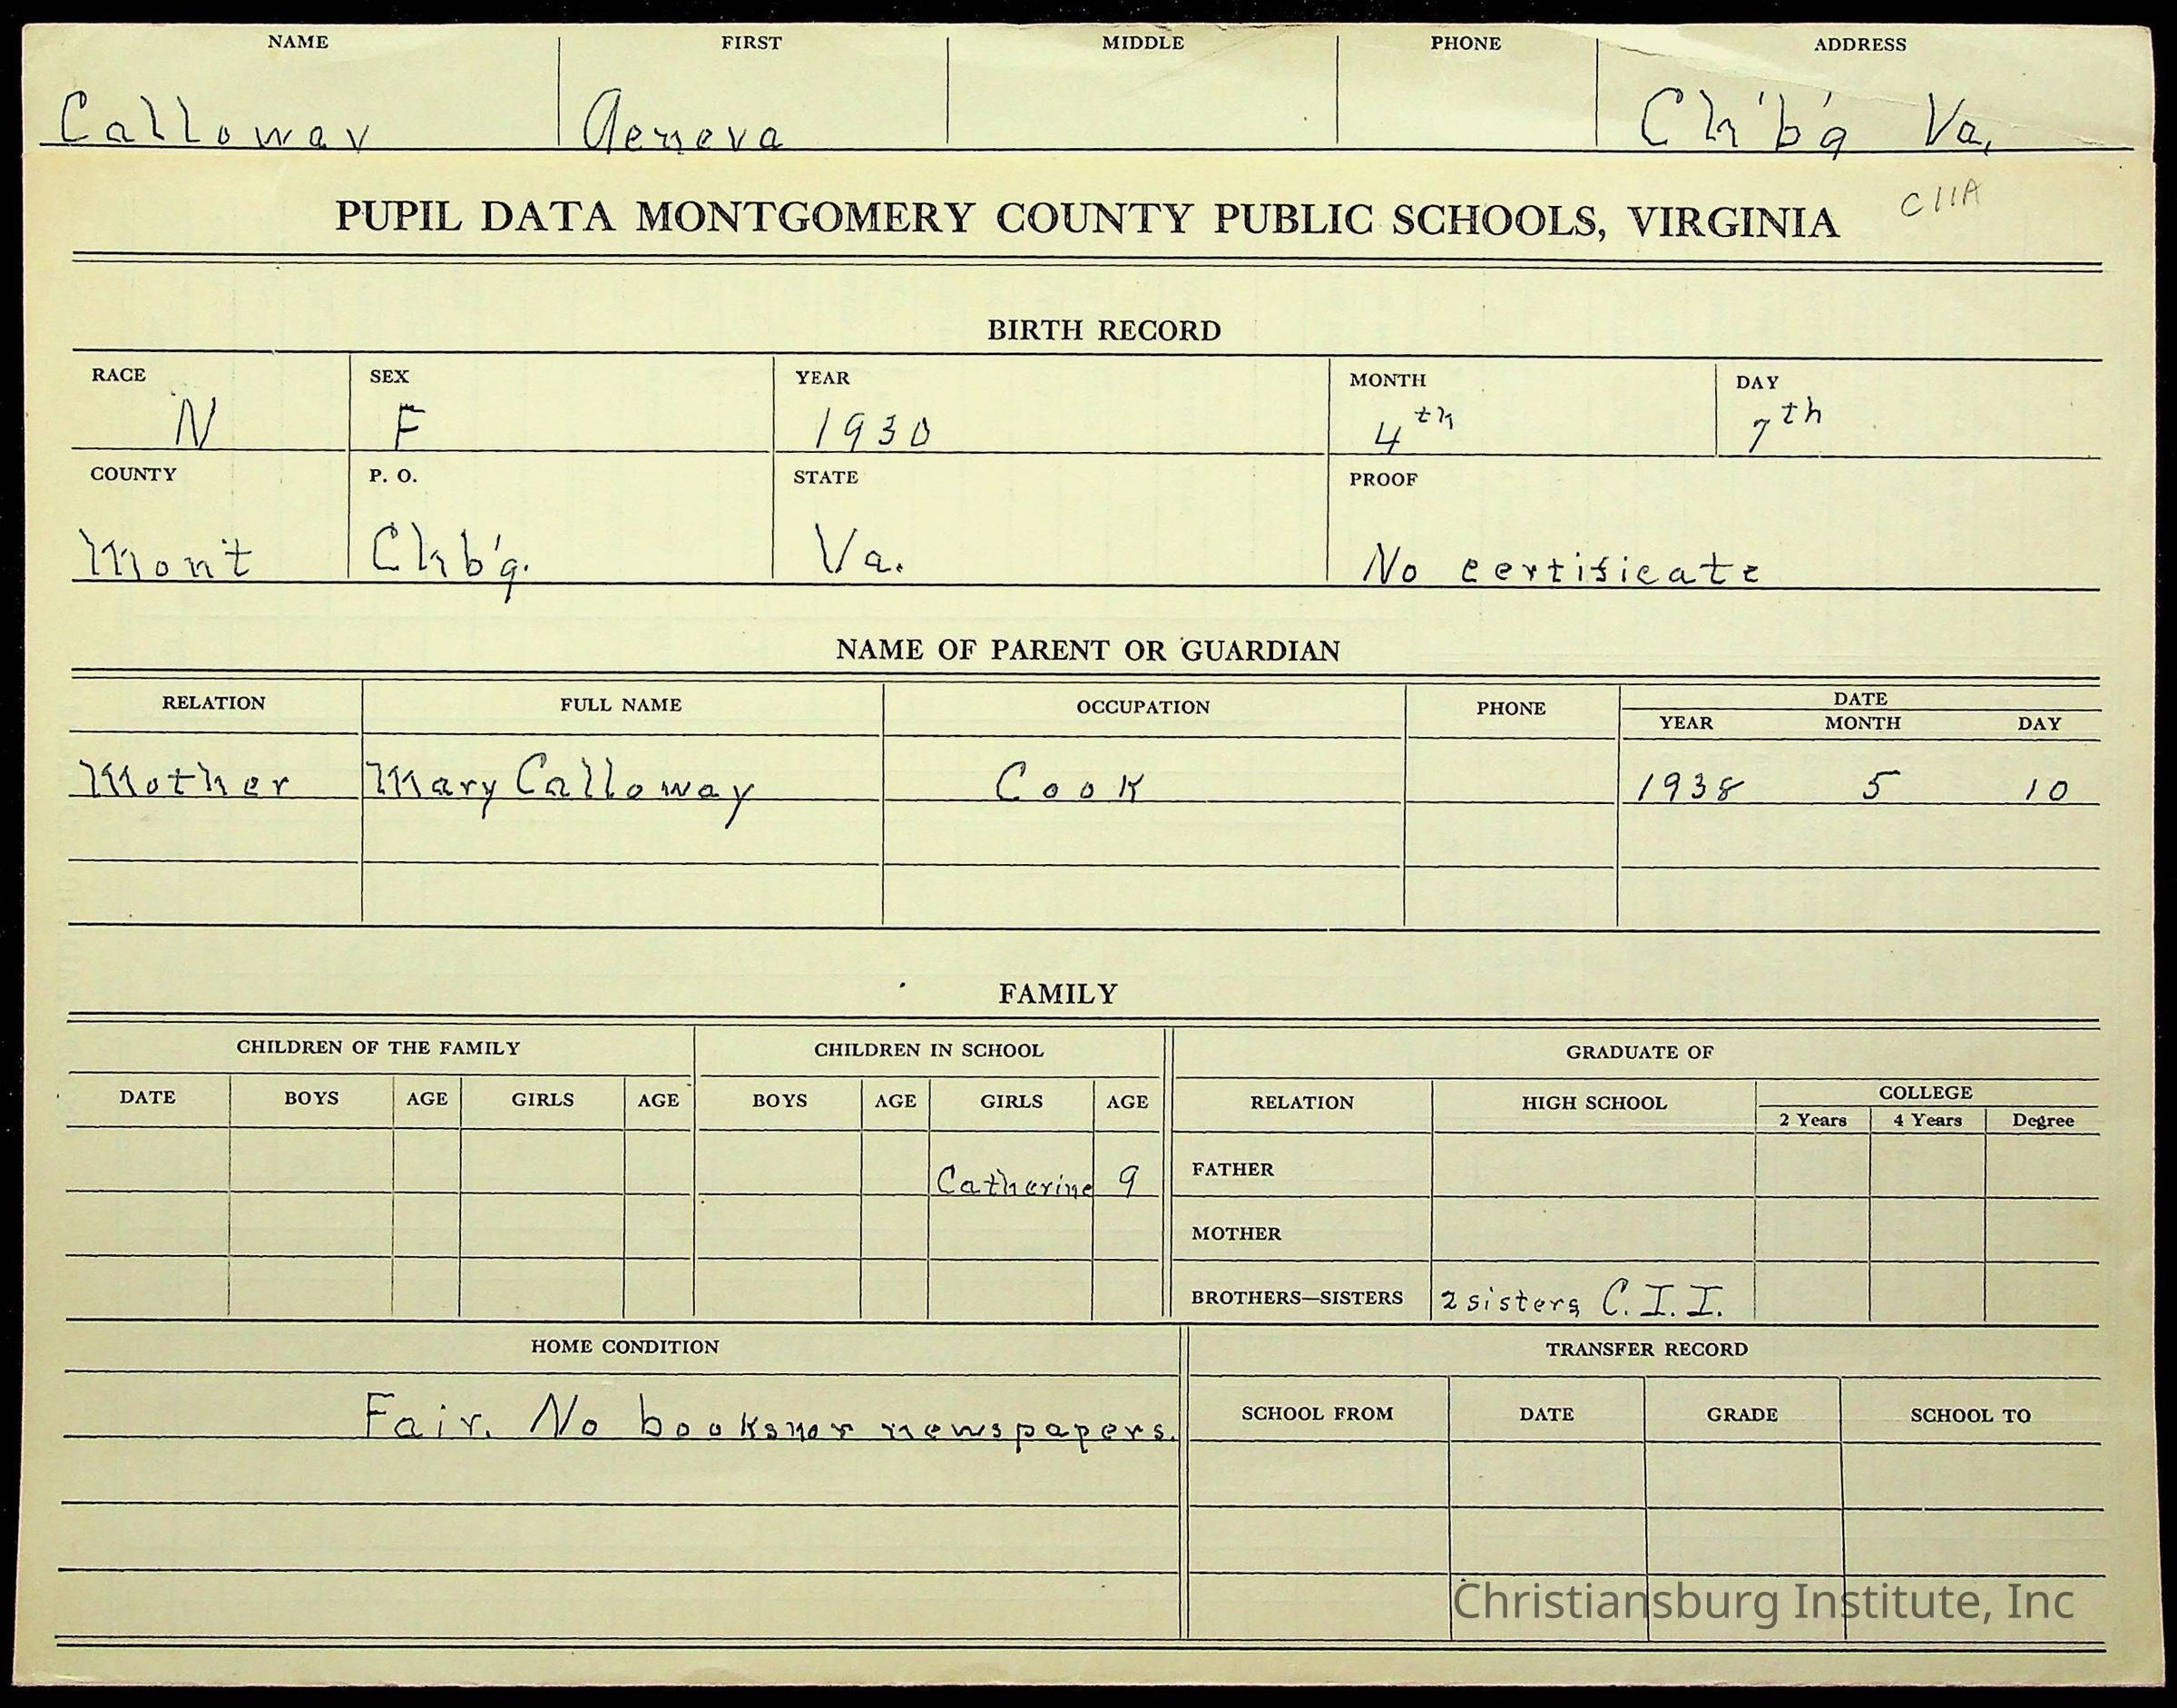 NAME FIRST MIDDLE PHONE ADDRESS
Calloway Geneva Ch'b'g Va.
PUPIL DATA MONTGOMERY COUNTY PUBLIC SCHOOLS, VIRGINIA C11A
BIRTH RECORD
RACE SEX YEAR MONTH DAY
N F 1930 4th 7th
COUNTY P. O. STATE PROOF
Mont Chb'g. Va. No certificate
NAME OF PARENT OR GUARDIAN
RELATION FULL NAME OCCUPATION PHONE DATE
YEAR MONTH DAY
Mother Mary Calloway Cook 1938 5 10
FAMILY
CHILDREN OF THE FAMILY CHILDREN IN SCHOOL GRADUATE OF
DATE BOYS AGE GIRLS AGE BOYS AGE GIRLS AGE RELATION HIGH SCHOOL COLLEGE
2 Years 4 Years Degree
Catherine 9 FATHER
MOTHER
BROTHERS—SISTERS 2 sisters C.I.I.
HOME CONDITION TRANSFER RECORD
SCHOOL FROM DATE GRADE SCHOOL TO
Fair. No books nor newspapers.
Christiansburg Institute, Inc